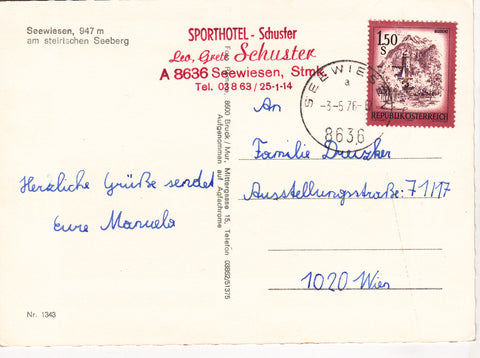 Seewiesen, 947 m
am steirischen Seeberg
SPORTHOTEL - Schuster
Leo, Grete Schuster
A 8636 Seewiesen, Stmk.
Tel. 038 63 / 25-1-14
1.50
S
REPUBLIK ÖSTERREICH
SEEWIES
a
-3.-5.76-
8636
An
Familie
Ausstellungsstraße: 71/17
1020 Wien
Herzliche Grüße sendet
Eure Manuela
8600 Bruck / Mur, Mittergasse 15, Telefon 03862/51375
Aufgenommen auf Agfachrome
Nr. 1343